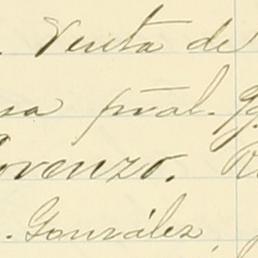 . Venta de
sa pral.
orenzo.
. González,